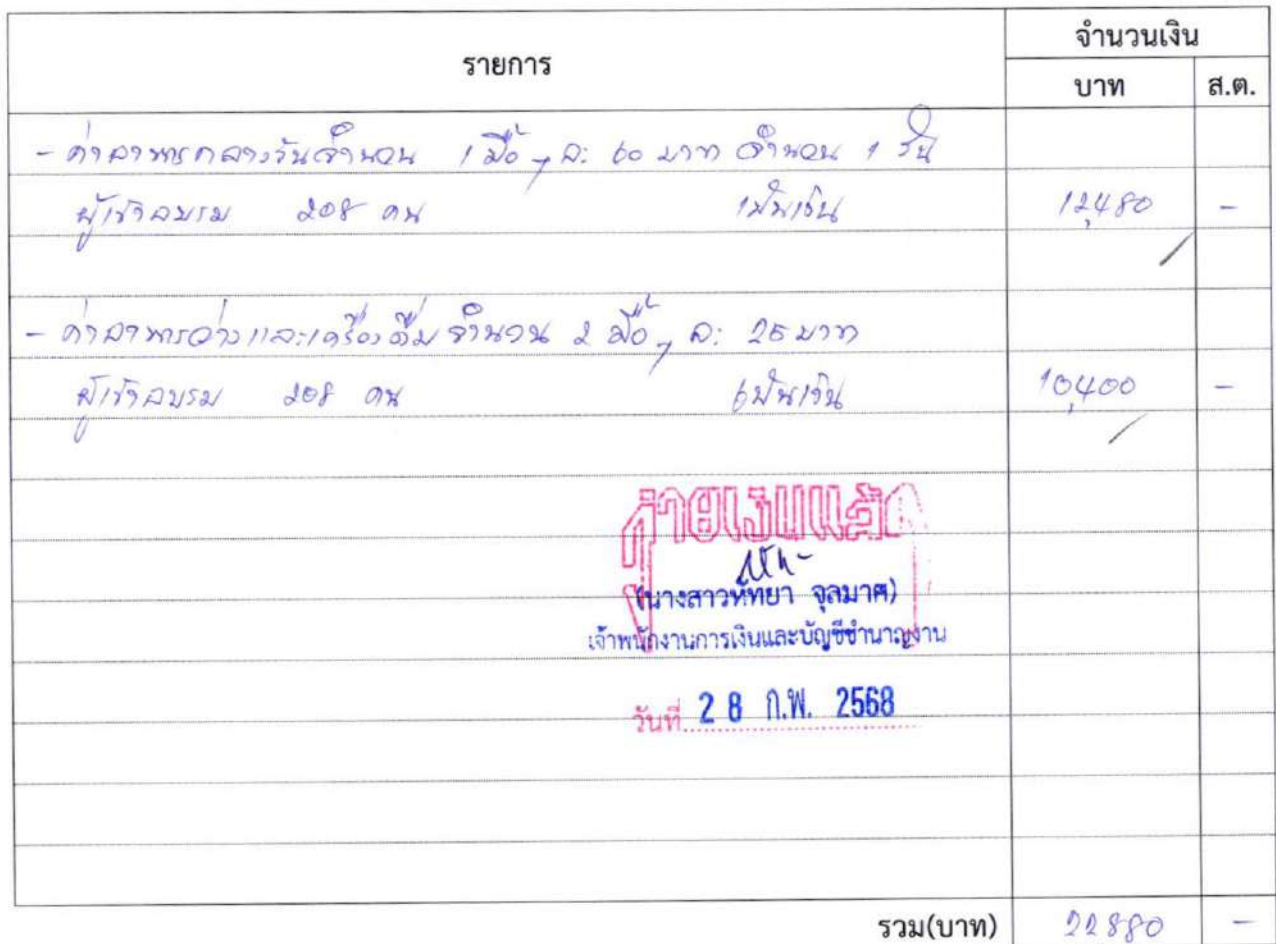 รายการ
จำนวนเงิน
บาท ส.ต.
- ค่าอาหารกลางวันจำนวน 1 มื้อ ๆ ละ 60 บาท จำนวน 1 วัน
ผู้เข้าอบรม 208 คน เป็นเงิน 12,480 -
- ค่าอาหารว่างและเครื่องดื่ม จำนวน 2 มื้อ ๆ ละ 25 บาท
ผู้เข้าอบรม 208 คน เป็นเงิน 10,400 -
จ่ายเงินแล้ว
(นางสาวหัทยา จุลมาศ)
เจ้าพนักงานการเงินและบัญชีชำนาญงาน
วันที่ 28 ก.พ. 2568
รวม(บาท) 22880 -